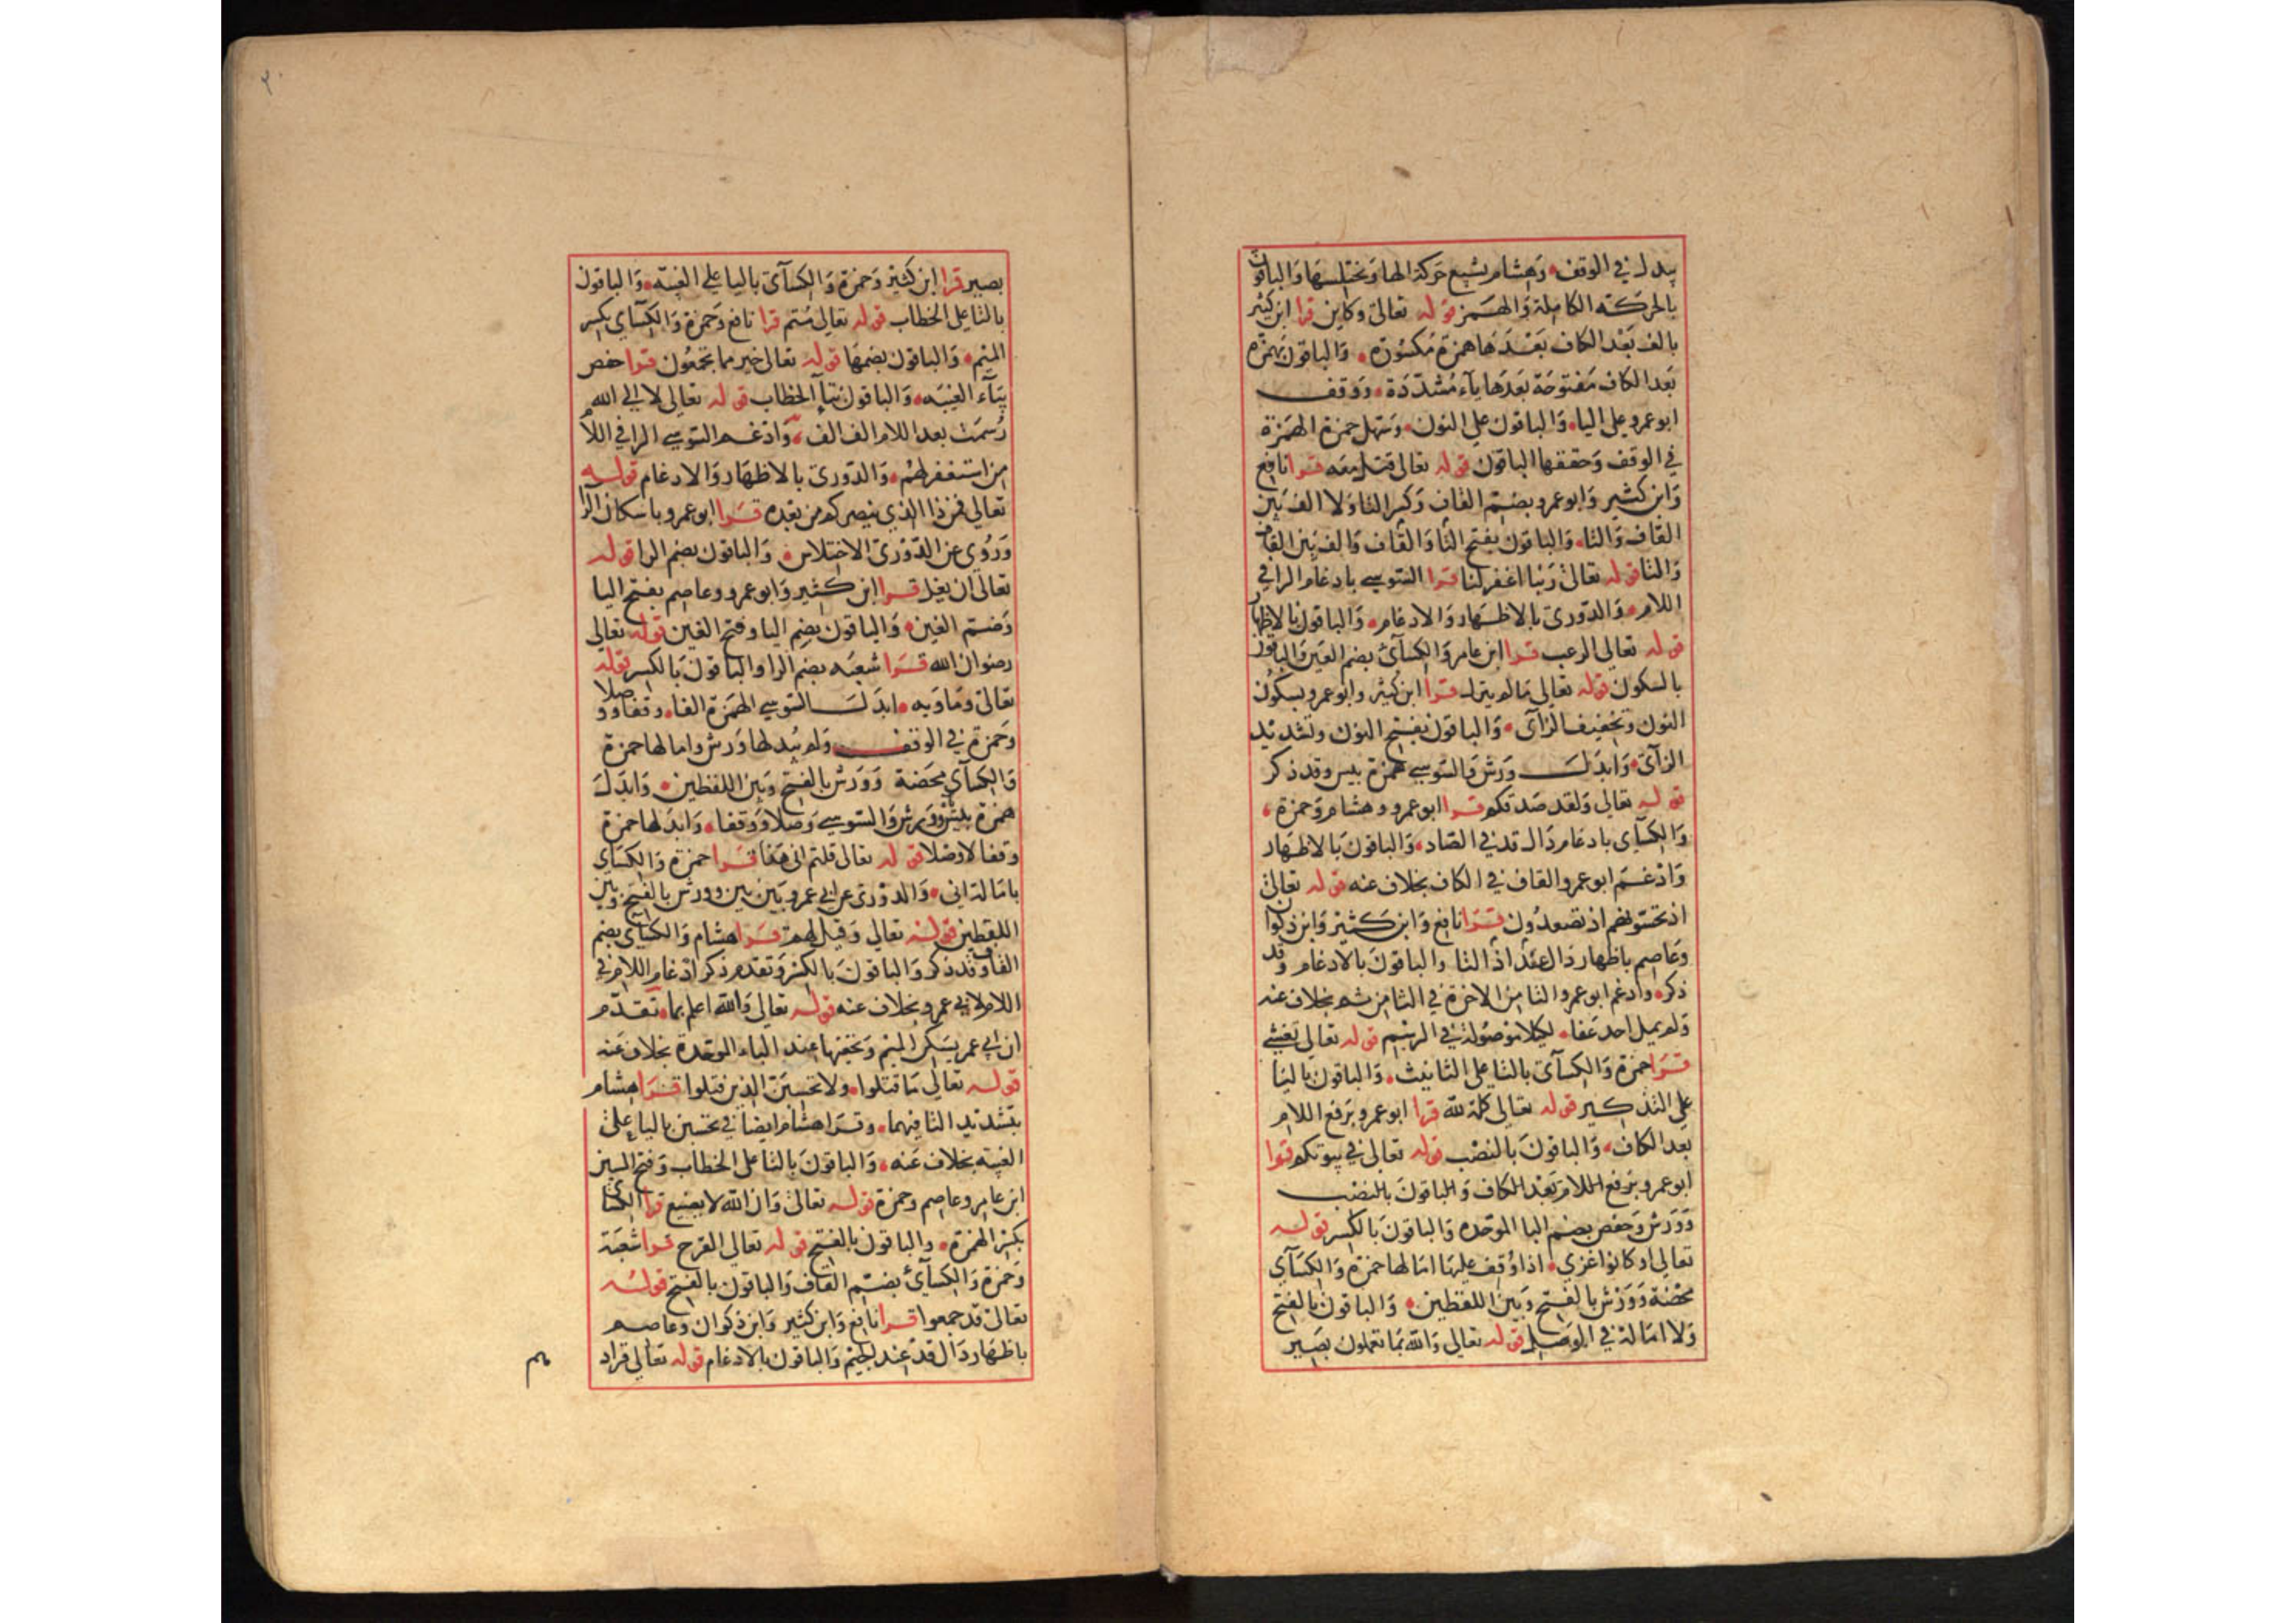 يبدل في الوقف وهشام يشبع حركة الها ويختلسها والباقون
بالحركة الكاملة والهمز قوله تعالى وكاين قرا ابن كثير
بالف بعد الكاف بعدها همزة مكسورة والباقون بهمزة
بعد الكاف مفتوحة بعدها ياء مشددة ووقف
ابو عمرو على اليا والباقون على النون وسهل حمزة الهمزة
في الوقف وحققها الباقون قوله تعالى قتل معه قرا نافع
وابن كثير وابو عمرو بضم القاف وكسر التا ولا الف بين
القاف والتا والباقون بفتح التا والقاف والف بين القاف
والتا قوله تعالى ربنا اغفر لنا قرا السوسي بادغام الرا في
اللام والدوري بالاظهار والادغام والباقون بالاظهار
قوله تعالى الرعب قرا ابن عامر والكسآئ بضم العين والباقون
بالسكون قوله تعالى مالم ينزل قرا ابن كثير وابو عمرو بسكون
النون وتخفيف الزآى والباقون بفتح النون وتشديد
الزآى وابدل ورش والسوسي همزة بيس وقد ذكر
قوله تعالى ولقد صدقكم قرا ابو عمرو وهشام وحمزة
والكسآى بادغام دال قد في الصاد والباقون بالاظهار
وادغم ابو عمرو القاف في الكاف بخلاف عنه قوله تعالى
اذ تحسونهم اذ تصعدون قرا نافع وابن كثير وابن ذكوان
وعاصم باظهار ذال عند اذ التا والباقون بالادغام وقد
ذكر وادغم ابو عمرو التا من الاخرة في الثا من ثم بخلاف عنه
ولم يمل احد عفا لكيلا موصولة في الرسم قوله تعالى تغشى
قرا حمزة والكسآى بالتا على التانيث والباقون باليا
على التذكير قوله تعالى كله لله قرا ابو عمرو برفع اللام
بعد الكاف والباقون بالنصب قوله تعالى في بيوتكم قرا
ابو عمرو برفع اللام بعد الكاف والباقون بالنصب
وورش وحفص بضم البا الموحده والباقون بالكسر قوله
تعالى او كانوا غزى اذا وقف عليها امالها حمزة والكسآى
محضة وورش بالفتح وبين اللفظين والباقون بالفتح
ولا امالة في الوصل قوله تعالى والله بما تعملون بصير
بصير قرا ابن كثير وحمزة والكسآى باليا على الغيبة والباقون
بالتا على الخطاب قوله تعالى متم قرا نافع وحمزة والكسآى بكسر
الميم والباقون بضمها قوله تعالى خير مما تجمعون قرا حفص
بيآء الغيبه والباقون بتآ الخطاب قوله تعالى لا الى الله
رسمت بعد اللام الف الف وادغم السوسي الرا في اللام
من استغفر لهم والدورى بالاظهار والادغام قوله
تعالى فمن ذا الذى ينصركم من بعده قرا ابو عمرو باسكان الرا
وروى عن الدورى الاختلاس والباقون بضم الرا قوله
تعالى ان يغل قرا ابن كثير وابو عمرو وعاصم بفتح اليا
وضم الغين والباقون بضم اليا وفتح الغين قوله تعالى
رضوان الله قرا شعبه بضم الرا والباقون بالكسر قوله
تعالى وماويه ابدل السوسي الهمزة الفا وقفا ووصلا
وحمزة في الوقف ولم يبدلها ورش وامالها حمزة
والكسآى محضة وورش بالفتح وبين اللفظين وابدل
همزة بئس ورش والسوسي وصلا ووقفا وابدلها حمزة
وقفا لا وصلا قوله تعالى قلتم انى هذا قرا حمزة والكسآى
بامالة انى والدورى عن ابى عمرو بين بين وورش بالفتح وبين
اللفظين قوله تعالى وقيل لهم قرا هشام والكسآى بضم
القاف وقد ذكر والباقون بالكسر وتقدم ذكر ادغام اللام في
اللام لابى عمرو بخلاف عنه قوله تعالى والله اعلم بما تقدم
ان ابى عمر يسكن الميم ويخفيها عند الباء الموحدة بخلاف عنه
قوله تعالى ما قتلوا ولا تحسبن الذين قتلوا قرا هشام
بتشديد التا فيهما وقرا هشام ايضا في تحسبن باليا على
الغيبة بخلاف عنه والباقون بالتا على الخطاب وفتح السين
ابن عامر وعاصم وحمزة قوله تعالى وان الله لا يضيع قرا الكسائى
بكسر الهمزة والباقون بالفتح قوله تعالى القرح قرا شعبة
وحمزة والكسآئ بضم القاف والباقون بالفتح قوله
تعالى قد جمعوا قرا نافع وابن كثير وابن ذكوان وعاصم
باظهار دال قد عند الجيم والباقون بالادغام قوله تعالى فزاد